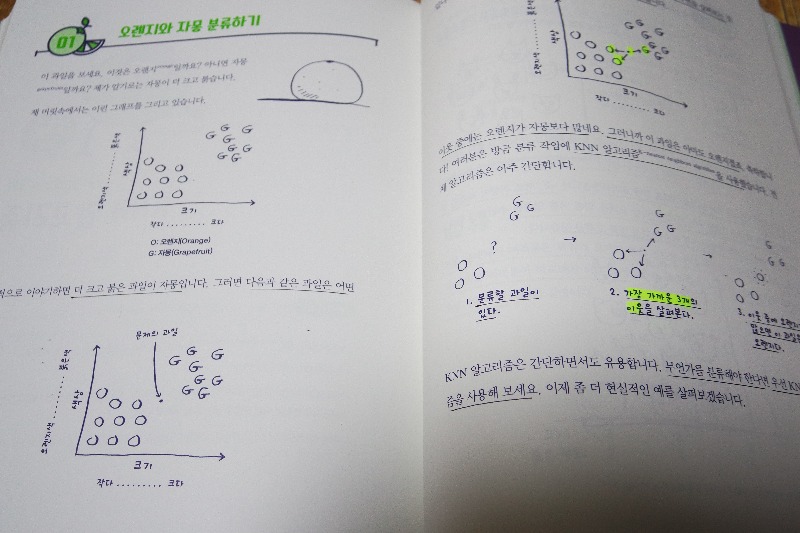 01
오렌지와 자몽 분류하기
이 과일을 보세요. 이것은 오렌지일까요? 아니면 자몽
일까요? 제가 알기로는 자몽이 더 크고 붉습니다.
제 머릿속에서는 이런 그래프를 그리고 있습니다.
오렌지색 ........ 붉은색
색상
G G G G G G G G
O O O O O O O O O
크기
작다 ......... 크다
O: 오렌지(Orange)
G: 자몽(Grapefruit)
적으로 이야기하면 더 크고 붉은 과일이 자몽입니다. 그러면 다음과 같은 과일은 어떤
문제의 과일
오렌지색 ........ 붉은색
색상
G G G G G G G G
O O O O O O O O O
크기
작다 ......... 크다
오렌지색
색상
G G G G G G G G
O O O O O O O O O
크기
작다 ........ 크다
이웃 중에는 오렌지가 자몽보다 많네요. 그러니까 이 과일은 아마도 오렌지겠죠.
다! 여러분은 방금 분류 작업에 KNN 알고리즘을 사용했습니다. 전
체 알고리즘은 아주 간단합니다.
G G G
?
O O O
→
G G G
O O O
→
G G G
O O O
1. 분류할 과일이
있다.
2. 가장 가까운 3개의
이웃을 살펴본다.
3. 이웃 중에 오렌지
많으면 이 과일은
오렌지다.
KNN 알고리즘은 간단하면서도 유용합니다. 무언가를 분류해야 한다면 우선 KN
즘을 사용해 보세요. 이제 좀 더 현실적인 예를 살펴보겠습니다.